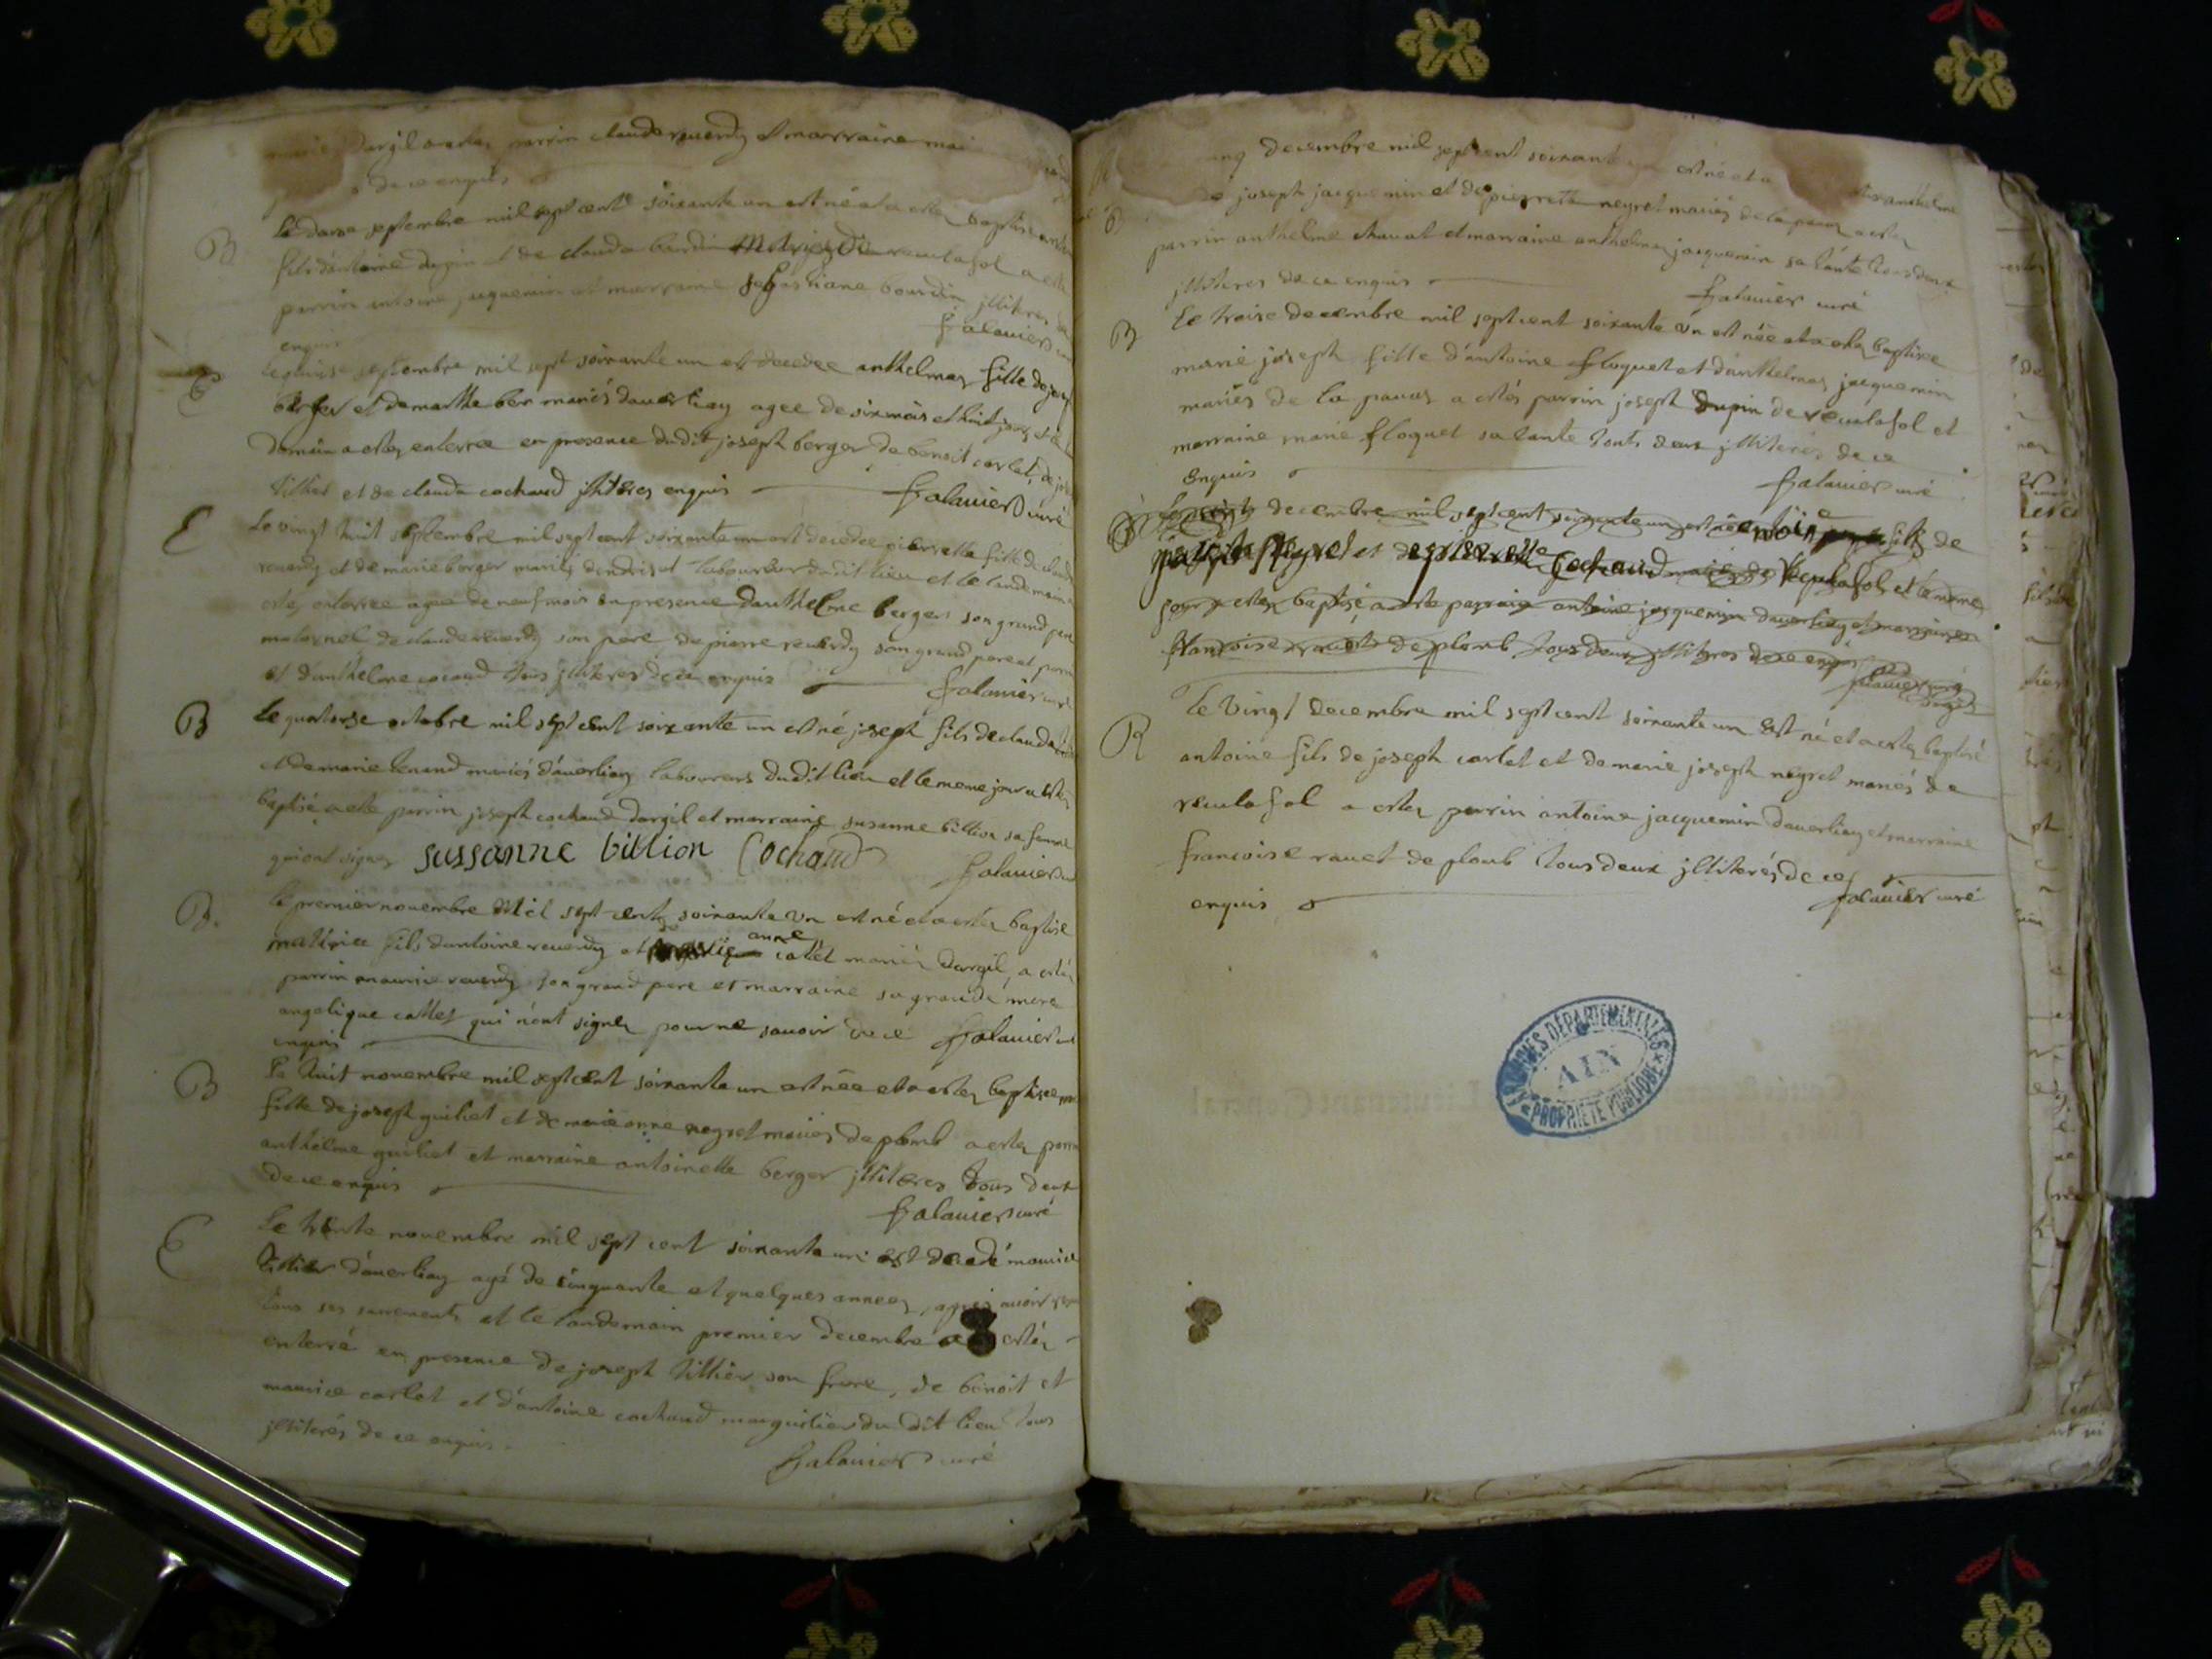 marie dargil a estez parrin claude reuerdy et marraine
de ce enquis
B
Le douse septembre mil sept cent soixante un est né et a estez baptisé
fils d'antoine dupin et de clauda burdin mariez de reculafol a este
parrin antoine jacquemin et marraine sebastiane bourdin illiteres
enquis
falauier
E
Le quinse septembre mil sept soixante un est decedee anthelmaz fille de
berger et de marthe ber mariés dauerliaz agee de six mois et huit jours
demain a estez enterree en presence dudit joseph berger de benoit carlet, de
tillier et de claude cochand illiteres enquis
falauier curé
E
Le vingt huit septembre mil sept cent soixante un est decedee pierrette fille de claude
reuerdy et de marie berger mariés laboureur dudit lieu et le lendemain
estez enterree agee de neuf mois en presence danthelme berger son grand pere
maternel de claude reuerdy son pere de pierre reuerdy son grand pere et parrin
et d'anthelme cocand tous illiteres de ce enquis
falauier curé
B
Le quatorse octobre mil sept cent soixante un est né joseph fils de claude
et de marie tenand mariés d'auerliaz laboureurs dudit lieu et le meme jour a estez
baptisé a este parrin joseph cochand dargil et marraine susanne billion sa femme
qui ont signez sussanne billion Cochand
falauier
B.
le premier nouembre Mil sept centz soixante un est né et a estez baptisé
maurice fils d'antoine reuerdy et anne callet mariés dargil, a estéz
parrin maurice reuerdy son grand pere et marraine sa grande mere
angelique callet qui n'ont signez pour ne sauoir de ce
enquis
falauier
B
Le huit nouembre mil sept cent soixante un est née et a estez baptisee
fille de joseph guiliet et de marie anne neyret mariés de plomb a estez parrin
anthelme guiliet et marraine antoinette berger illiteres tous deux
de ce enquis
falauier curé
E
Le trente nouembre mil sept cent soixante un est decedé maurice
tillier d'auerliaz agé de cinquante et quelques annees, apres auoir
tous ses sacrements et le landemain premier decembre a estéz
enterré en presence de joseph tillier son frere, de benoit et
maurice carlet et d'antoine cochand marguilier du dit lieu tous
illiterés de ce enquis.
falauier curé
decembre mil sept cent soixante un est né et a
de joseph jacquemin et de pierrette neyret mariés de la pauaz a estez
B
parrin anthelme chauat et marraine anthelmaz jacquemin sa tante tous deux
illiteres de ce enquis
falauier curé
B
Le treise decembre mil sept cent soixante un est née et a estez baptisee
marie joseph fille d'antoine floquet et d'anthelmaz jacquemin
mariés de la pauaz a estés parrin joseph dupin de reculafol et
marraine marie floquet sa tante touts deux illiterés de ce
enquis
falauier curé
Le vingt decembre mil sept cent soixante un est né antoine fils de
neyret et de pierrette Cochand mariés de Reculafol et le meme
jour a estez baptisé a este parrain antoine jacquemin dauerliaz et marraine
francoise rauet de plomb tous deux illiteres de ce enquis
falauier curé
B
Le vingt decembre mil sept cent soixante un est né et a estez baptisé
antoine fils de joseph carlet et de marie joseph neyret mariés de
reculafol a estez parrin antoine jacquemin dauerliaz et marraine
francoise rauet de plomb tous deux illiterés de ce
enquis
falauier curé
ARCHIVES DÉPARTEMENTALES
AIN
PROPRIÉTÉ PUBLIQUE